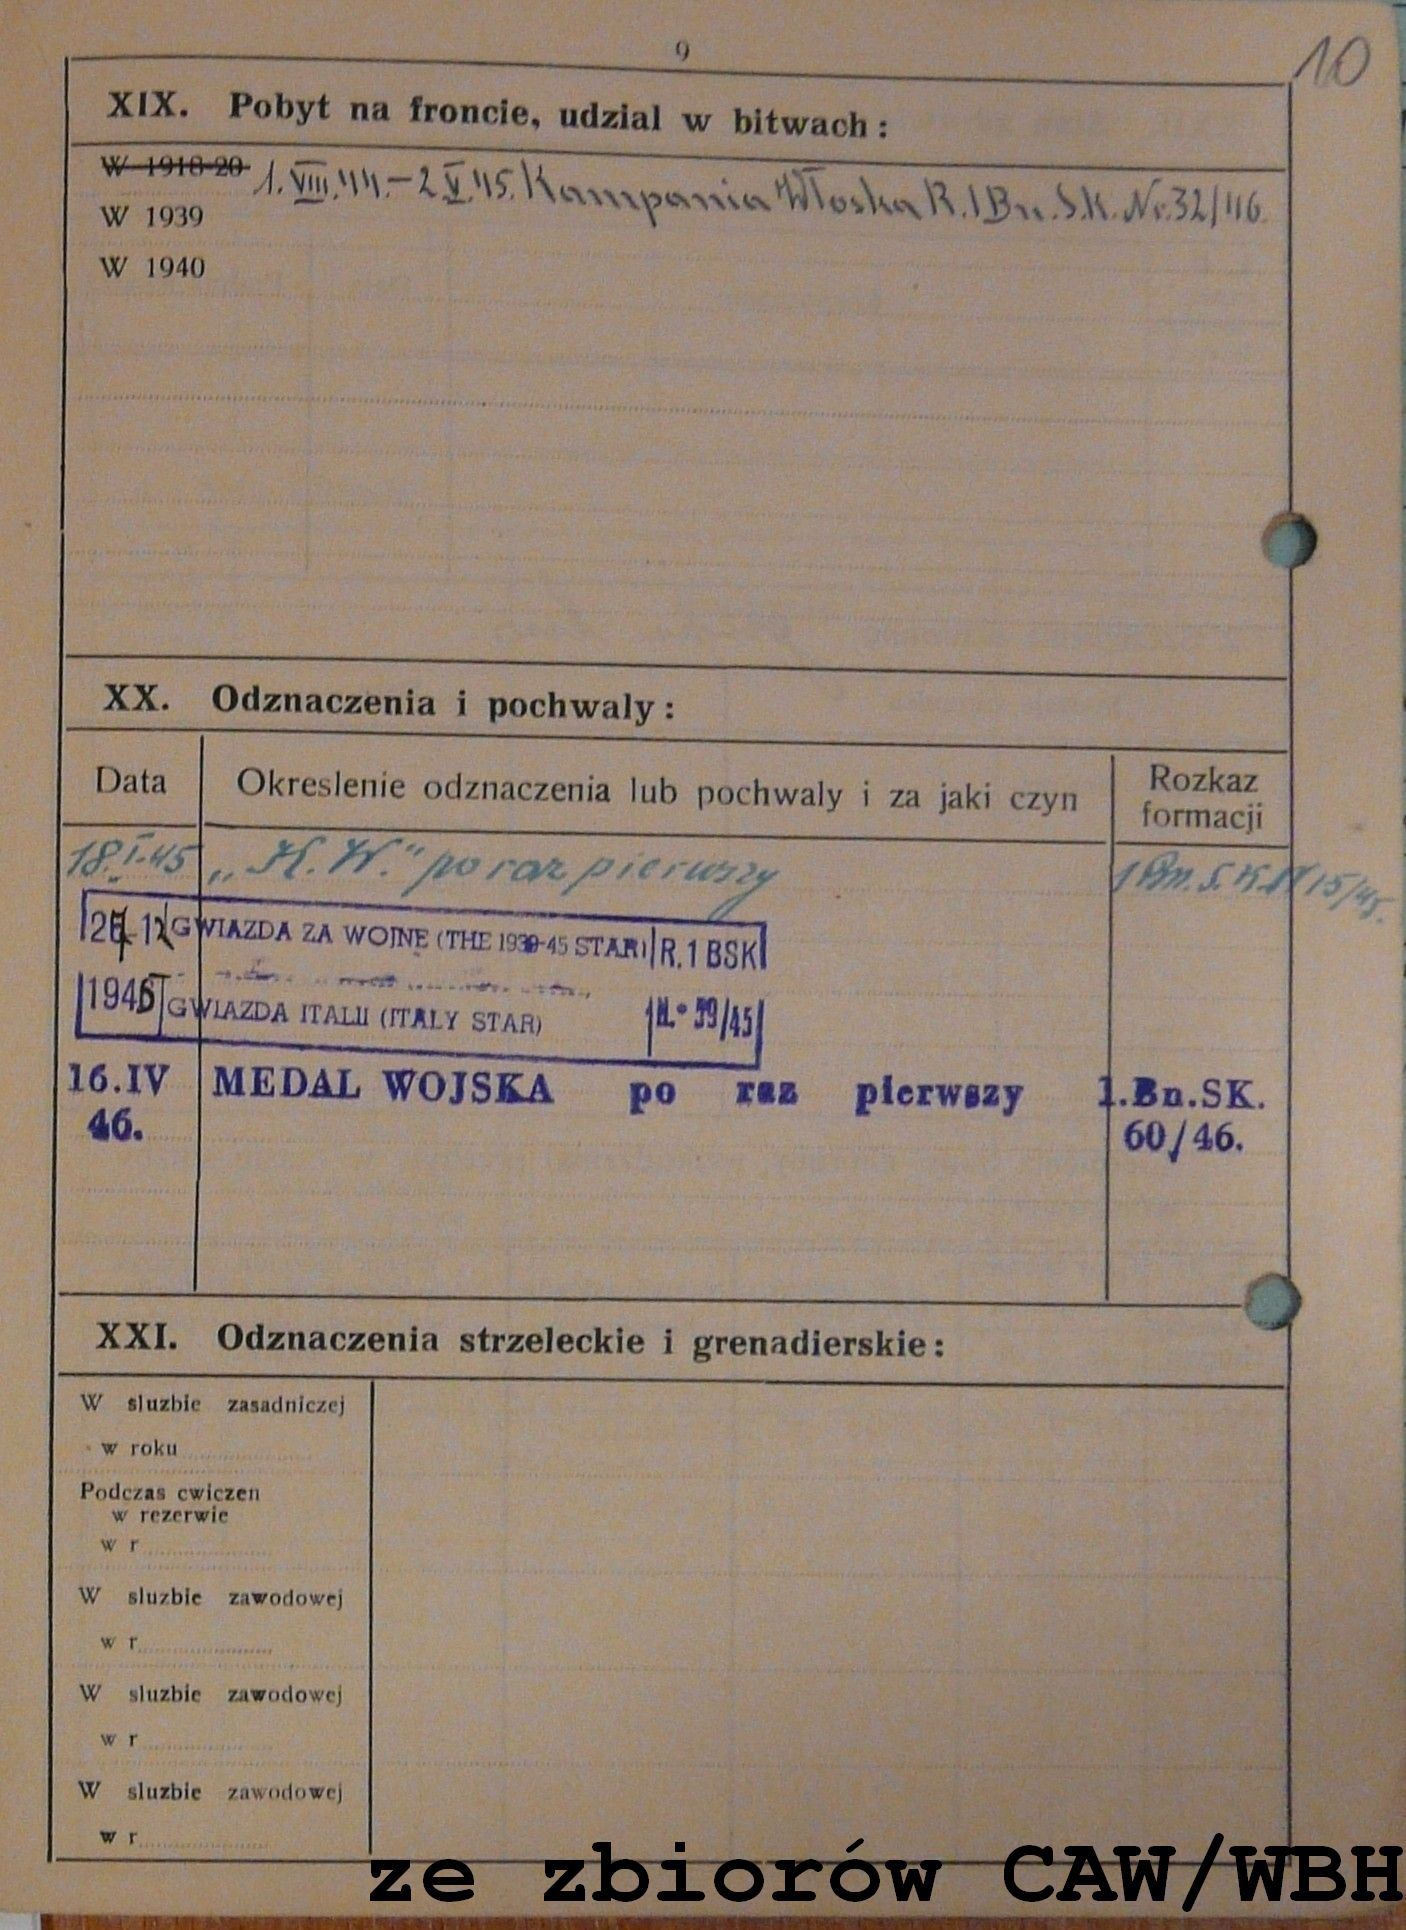 9
10
XIX. Pobyt na froncie, udzial w bitwach:
W 1918-20 1.VIII.44.-2.V.45. Kampania Włoska R.1 Bn.S.K. Nr.32/46
W 1939
W 1940
XX. Odznaczenia i pochwaly:
Data Okreslenie odznaczenia lub pochwaly i za jaki czyn Rozkaz
formacji
18.I.45 „K.W." po raz pierwszy 1 Bn. S.K. 15/45.
12 GWIAZDA ZA WOJNE (THE 1939-45 STAR) R.1 BSK
1945 GWIAZDA ITALII (ITALY STAR) N.º 59/45
16.IV MEDAL WOJSKA po raz pierwszy 1.Bn.SK.
46. 60/46.
XXI. Odznaczenia strzeleckie i grenadierskie:
W sluzbie zasadniczej
w roku
Podczas cwiczen
w rezerwie
w r
W sluzbie zawodowej
w r
W sluzbie zawodowej
w r
W sluzbie zawodowej
w r
ze zbiorów CAW/WBH